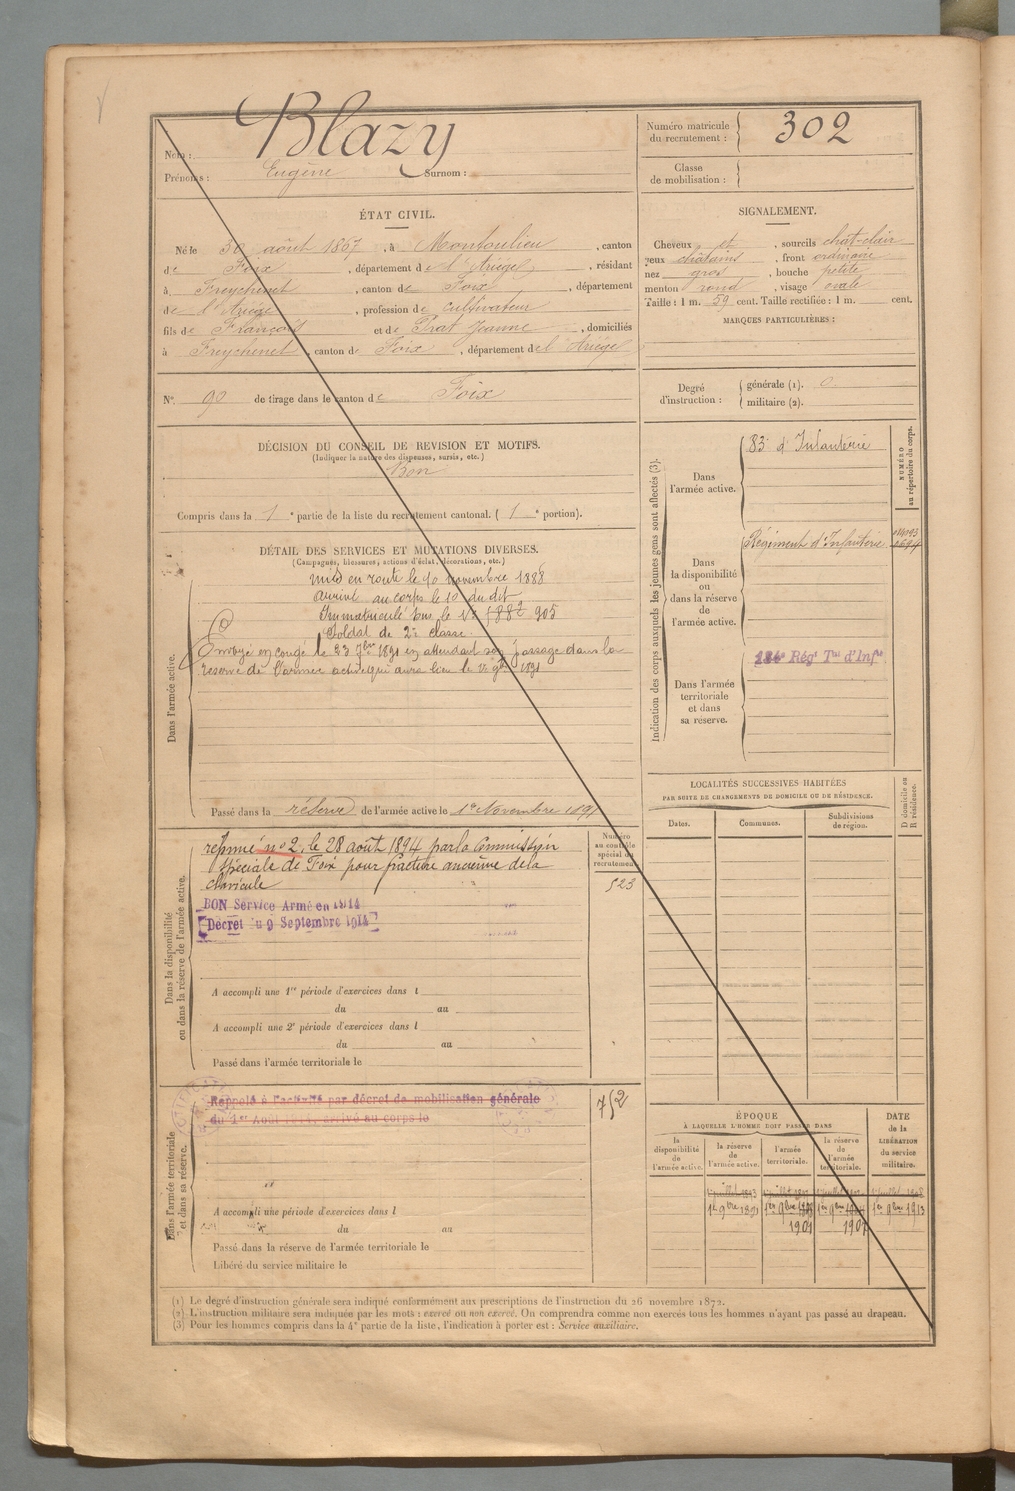 Blazy
Nom :
Prénoms : Eugène Surnom :
Numéro matricule
du recrutement : 302
Classe
de mobilisation :
ÉTAT CIVIL.
Né le 30 août 1867, à Montoulieu, canton
de Foix, département de l'Ariège, résidant
à Freychenet, canton de Foix, département
de l'Ariège, profession de cultivateur
fils de François et de Prat Jeanne, domiciliés
à Freychenet, canton de Foix, département de l'Ariège
SIGNALEMENT.
Cheveux et, sourcils chat-clair
yeux châtains, front ordinaire
nez gros, bouche petite
menton rond, visage ovale
Taille : 1 m. 59 cent. Taille rectifiée : 1 m. cent.
MARQUES PARTICULIÈRES :
N° 90 de tirage dans le canton de Foix
Degré
d'instruction :
générale (1). 0
militaire (2).
DÉCISION DU CONSEIL DE REVISION ET MOTIFS.
(Indiquer la nature des dispenses, sursis, etc.)
Bon
Compris dans la 1e partie de la liste du recrutement cantonal. ( 1e portion).
DÉTAIL DES SERVICES ET MUTATIONS DIVERSES.
(Campagnes, blessures, actions d'éclat, décorations, etc.)
Dans l'armée active.
Mis en route le 10 novembre 1888
Arrivé au corps le 10 du dit
Immatriculé sous le N°
Soldat de 2e classe.
Envoyé en congé le 23 7bre 1891 en attendant son passage dans la
réserve de l'armée active qui aura lieu le 1er 9bre 1891
Passé dans la réserve de l'armée active le 1er Novembre 1891
Indication des corps auxquels les jeunes gens sont affectés (3).
NUMÉRO
au répertoire du corps.
Dans
l'armée active.
83e d'Infanterie
Dans
la disponibilité
ou
dans la réserve
de
l'armée active.
Régiment d'Infanterie
Dans l'armée
territoriale
et dans
sa réserve.
Régt Tal d'Infie
Dans la disponibilité
ou dans la réserve de l'armée active.
Numéro
au contrôle
spécial du
recrutement
523
réformé n° 2, le 28 août 1894 par la Commission
spéciale de Foix pour fracture ancienne de la
clavicule
BON Service Armé en 1914
Décret du 9 Septembre 1914
A accompli une 1re période d'exercices dans l
du au
A accompli une 2e période d'exercices dans l
du au
Passé dans l'armée territoriale le
LOCALITÉS SUCCESSIVES HABITÉES
PAR SUITE DE CHANGEMENTS DE DOMICILE OU DE RÉSIDENCE.
Dates.
Communes.
Subdivisions
de région.
D domicile ou
R résidence.
Dans l'armée territoriale
et dans sa réserve.
Rappelé à l'activité par décret de mobilisation générale
du 1er Août 1914, arrivé au corps le
752
A accompli une période d'exercices dans l
du au
Passé dans la réserve de l'armée territoriale le
Libéré du service militaire le
ÉPOQUE
À LAQUELLE L'HOMME DOIT PASSER DANS
la
disponibilité
de
l'armée active.
la réserve
de
l'armée active.
l'armée
territoriale.
la réserve
de
l'armée
territoriale.
DATE
de la
LIBÉRATION
du service
militaire.
1er juillet 1893
1er 9bre 1891
1er 9bre
1901
1er 9bre
1907
1er 9bre 1913
(1) Le degré d'instruction générale sera indiqué conformément aux prescriptions de l'instruction du 26 novembre 1872.
(2) L'instruction militaire sera indiquée par les mots : exercé ou non exercé. On comprendra comme non exercés tous les hommes n'ayant pas passé au drapeau.
(3) Pour les hommes compris dans la 4e partie de la liste, l'indication à porter est : Service auxiliaire.